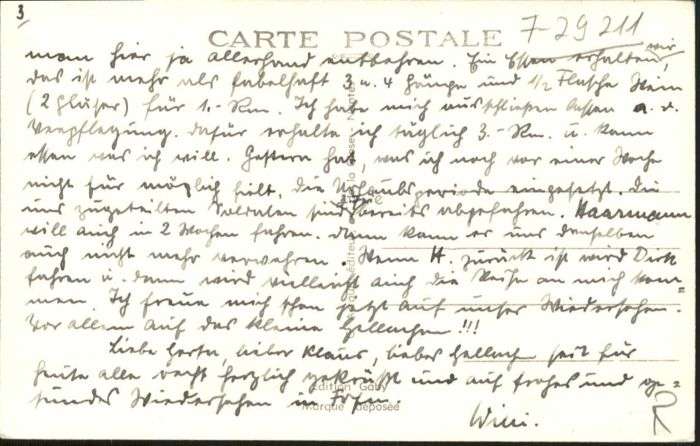 3
7-29 211
CARTE POSTALE
man hier ja allerhand entbehren. Ein Essen erhalten wir,
das ist mehr als fabelhaft 3 u. 4 Gänge und 1/2 Flasche Wein
(2 Gläser) für 1.- Rm. Ich habe mich ausschließen lassen a. d.
Verpflegung. dafür erhalte ich täglich 3.- Rm. u. kann
essen was ich will. Gestern hat, was ich noch vor einer Woche
nicht für möglich hielt, die Urlaubsperiode eingesetzt. Die
uns zugeteilten Soldaten sind bereits abgefahren. Haarmann
will auch in 2 Wochen fahren. dann kann er uns denselben
auch nicht mehr verwehren. Wenn H. zurück ist wird Dirk
fahren u. dann wird vielleicht auch die Reihe an mich kom=
men Ich freue mich schon jetzt auf unser Wiedersehen.
Vor allem auf das kleine !!!
Liebe Herta, lieber Klaus, liebes seit für
heute alle recht herzlich gegrüßt und auf frohes und ge=
sundes Wiedersehen in Ffm.
Willi.
R
Edition Gaby
Marque déposée